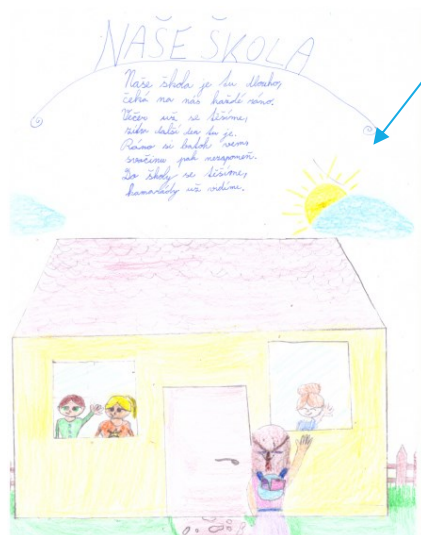 NAŠE ŠKOLA
Naše škola je tu dlouho,
čeká na nás každé ráno.
Večer už se těšíme,
zítra další den tu je.
Ráno si batoh vem,
svačinu pak nezapomeň.
Do školy se těšíme,
kamarády už vidíme.